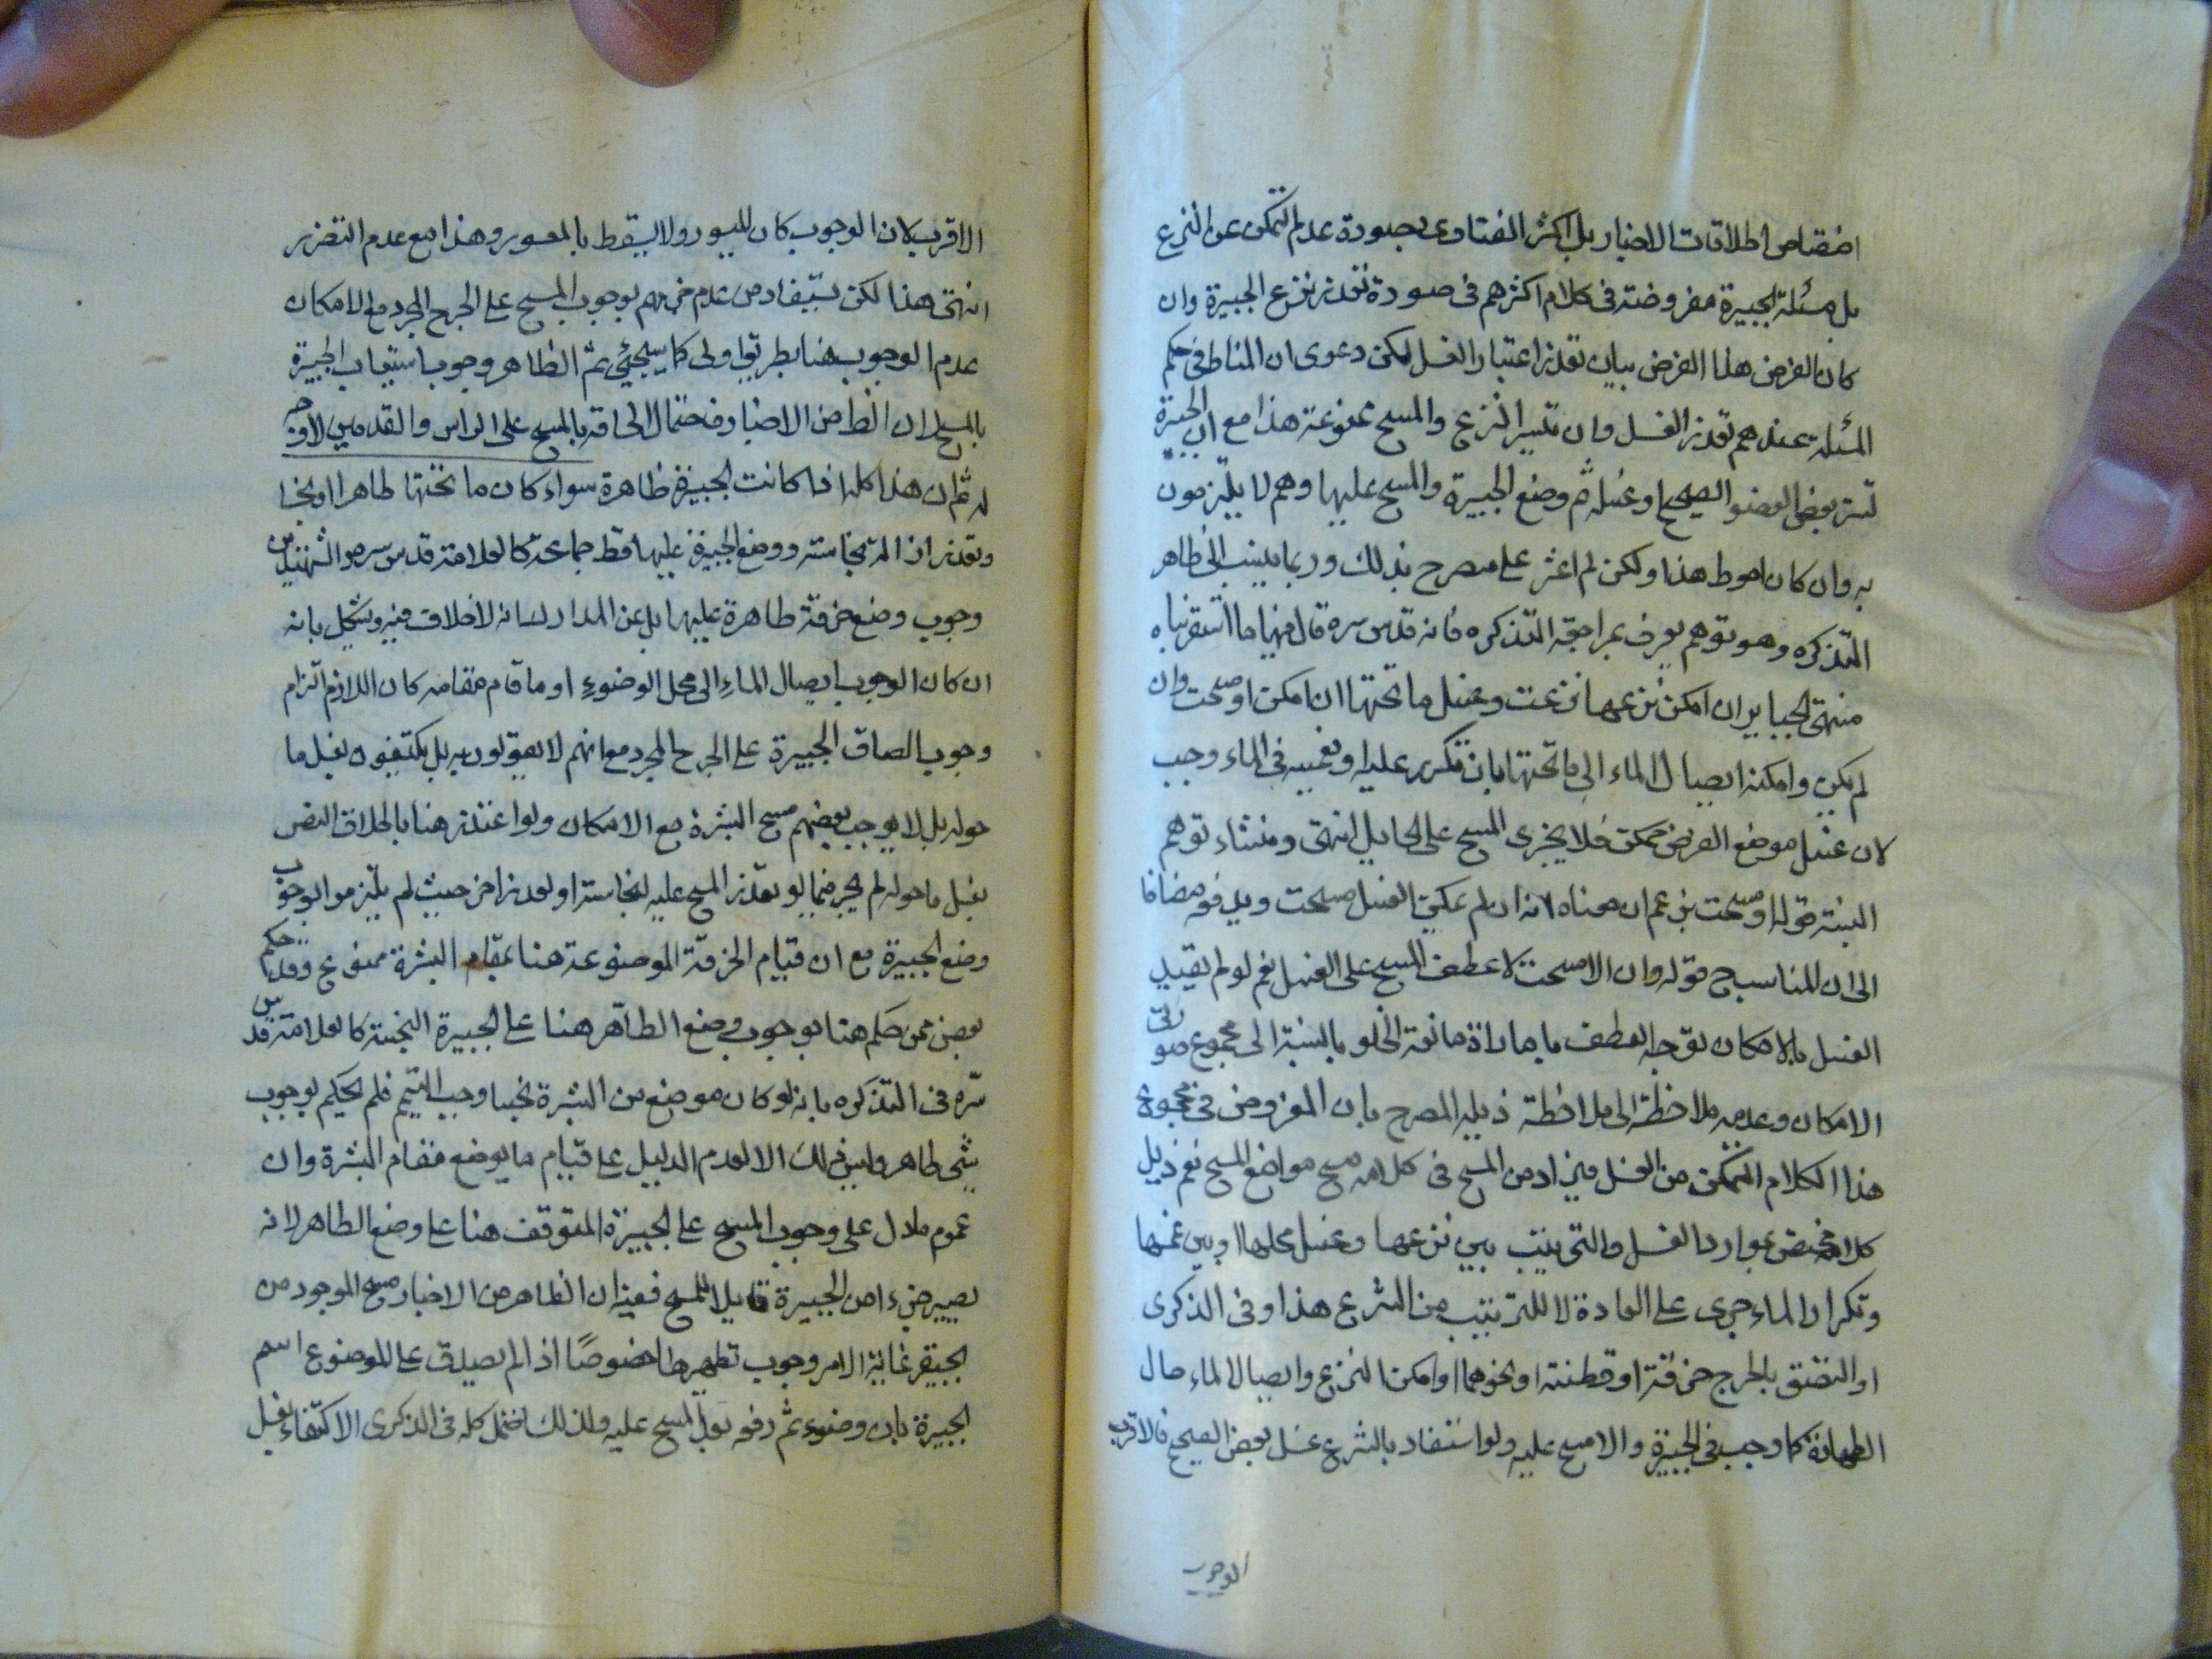 اختصاص اطلاقات الاخبار بل اكثر الفتاوى بصورة عدم التمكن عن النزع
بل مسئلة الجبيرة مفروضة فى كلام اكثرهم فى صورة تعذر نزع الجبيرة وان
كان الغرض هذا الفرض بيان تعذر اعتبار الغسل لكن دعوى ان المناط فى حكم
المسئلة عندهم تعذر الغسل وان تيسر النزع والمسح ممنوعة هذا مع ان الجبيرة
تستر بعض العضو الصحيح او غسله ثم وضع الجبيرة والمسح عليها وهم لا يلتزمون
به وان كان احوط هذا ولكن لم اعثر على مصرح بذلك وربما ينسب الى ظاهر
التذكره وهو توهم يعرف بمراجعة التذكره فانه قدس سره قال فيها ما
منتهى الجباير ان امكن نزعها نزعت وغسل ما تحتها ان امكن او مسحت وان
لم يكن وامكنه ايصال الماء الى ما تحتها بان تكرر عليه او تغمسه فى الماء وجب
لان غسل موضع الفرض ممكن فلا يجزى المسح على الحايل انتهى ومنشاء توهم
النسبة قوله او مسحت بزعم ان معناه انه ان لم يمكن الغسل مسحت ويدفعه مضافا
الى ان المناسب ح قوله وان الا مسحت لا عطف المسح على الغسل نعم لو لم يقيد
الغسل بالامكان توجه العطف بها باداة مانعة الخلو بالنسبة الى مجموع صورتى
الامكان وعدمه ملاحظة الى ملاحظة ذيله المصرح بان المفروض فى مجموع
هذا الكلام التمكن من الغسل فيراد من المسح فى كلامه مسح مواضع المسح نعم ذيل
كلامه مختص بموارد الغسل والترتيب بين نزعها وغسل محلها او بين غمسها
وتكرار الماء جرى على العادة لا للترتيب من الشرع هذا وفى الذكرى
او الصق بالجرح خرقة او قطنة او نحوهما او امكن النزع وايصال الماء حال
الطهارة كما وجب فى الجبيرة والا مسح عليه ولو استفاد بالنزع غسل بعض الصحيح فالاقرب
الوجوب
الاقرب لان الوجوب كان للميسور ولا يسقط بالمعسور وهذا مع عدم التضرر
انتهى هذا لكن يستفاد من عدم جزمهم بوجوب المسح على الجرح المجرد مع الامكان
عدم الوجوب هنا بطريق اولى كما سيجئى ثم الظاهر وجوب استيعاب الجبيرة
بالمسح لان الظ من الاخبار فاحتمال الحاقه بالمسح على الراس والقدمين لا وجه
له ثم ان هذا كله اذا كانت الجبيرة ظاهرة سواء كان ما تحتها طاهرا او نجسا
وتعذر ازالة نجاسته ووضع الجبيرة عليها فقط جماعة كالعلامة قدس سره والشهيدين
وجوب وضع خرقة طاهرة عليها بل عن المدارك انه لا خلاف فيه ويشكل بانه
ان كان الوجوب ايصال الماء الى محل الوضوء او ما قام مقامه كان اللازم التزام
وجوب الصاق الجبيرة على الجرح المجرد مع انهم لا يقولون به بل يكتفون بغسل ما
حوله بل لا يوجب بعضهم مسح البشرة مع الامكان ولو اعتذر هنا باطلاق النص
بغسل ما حوله لم يجر فيما لو تعذر المسح عليه لنجاسته او لعذر اخر حيث لم يلتزموا بوجوب
وضع الجبيرة مع ان قيام الخرقة الموضوعة هنا مقام البشرة ممنوع وقد حكم
بعض من حكم هنا بوجوب وضع الطاهر هنا على الجبيرة النجسة كالعلامة قدس
سره فى التذكره بانه لو كان موضع من البشرة نجسا وجب التيمم فلم يحكم بوجوب
شئ طاهر وليس ذلك الا لعدم الدليل على قيام ما يوضع مقام البشرة وان
عموم ما دل على وجوب المسح على الجبيرة المتوقف هنا على وضع الطاهر لانه
يصير جزء امن الجبيرة قابلا للمسح ففيه ان الظاهر من الاخبار مسح الموجود من
الجبيرة غاية الامر وجوب تطهيرها خصوصًا اذ لم يصدق على الموضوع اسم
الجبيرة بان وضوء ثم رفعه بعد المسح عليه ولذلك احتمل كله فى الذكرى الاكتفاء بغسل